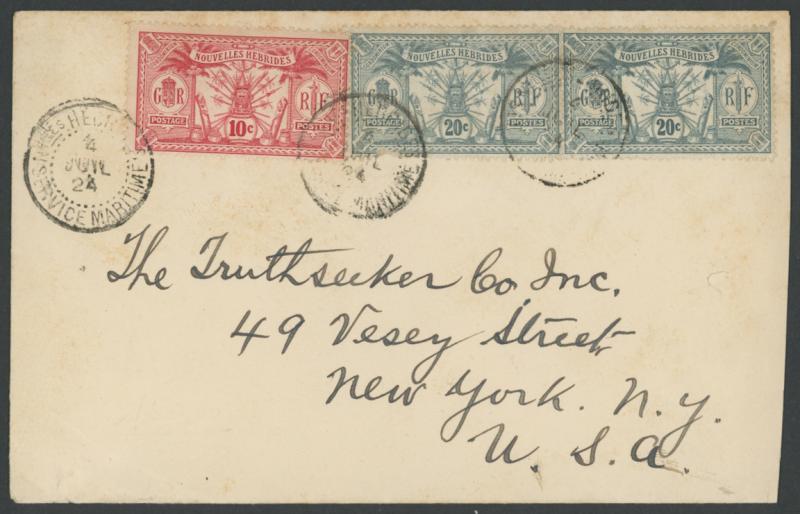 NOUVELLES HEBRIDES
G R
R F
POSTAGE
10c
POSTES
NOUVELLES HEBRIDES
G R
R F
POSTAGE
20c
POSTES
NOUVELLES HEBRIDES
G R
R F
POSTAGE
20c
POSTES
4
JUIL
24
SERVICE MARITIME
24
MARITIME
The Truthseeker Co. Inc.
49 Vesey Street
New York. N.Y.
U. S. A.